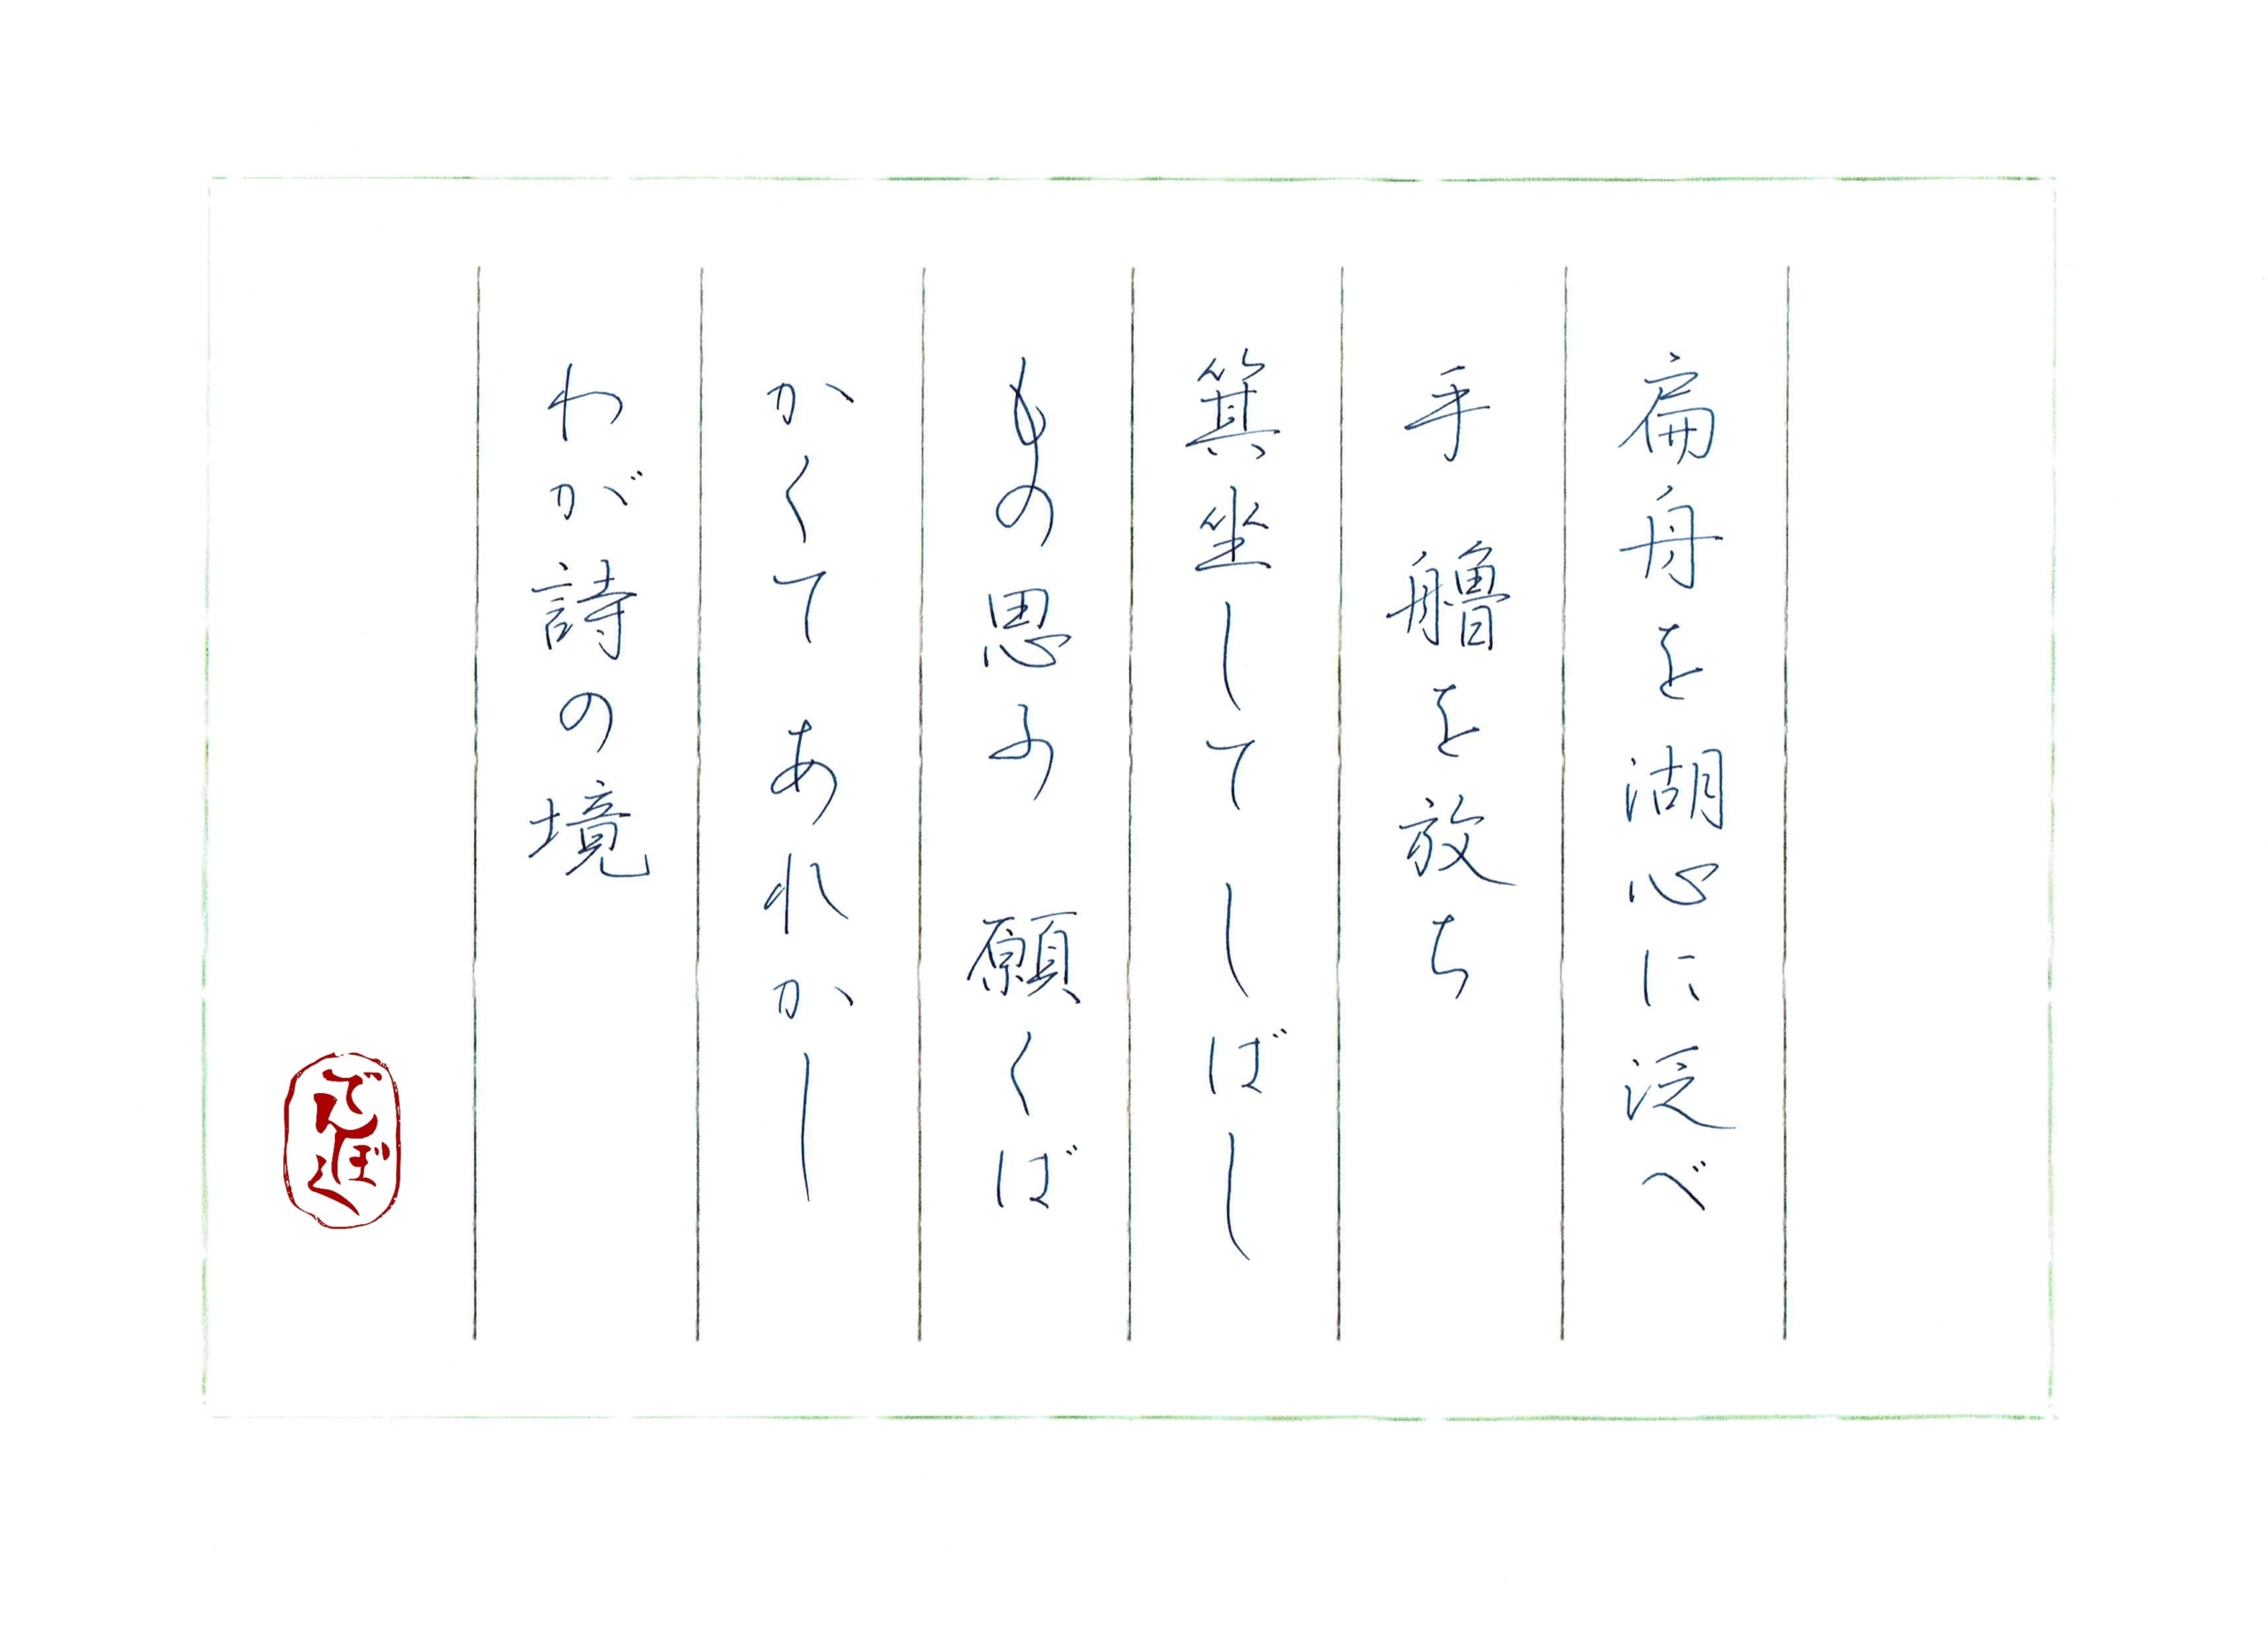 扁舟を湖心に泛べ
手 艪を放ち
箕坐して しばし
もの思ふ 願くば
かくて あれかし
わが詩の境
でんぼく